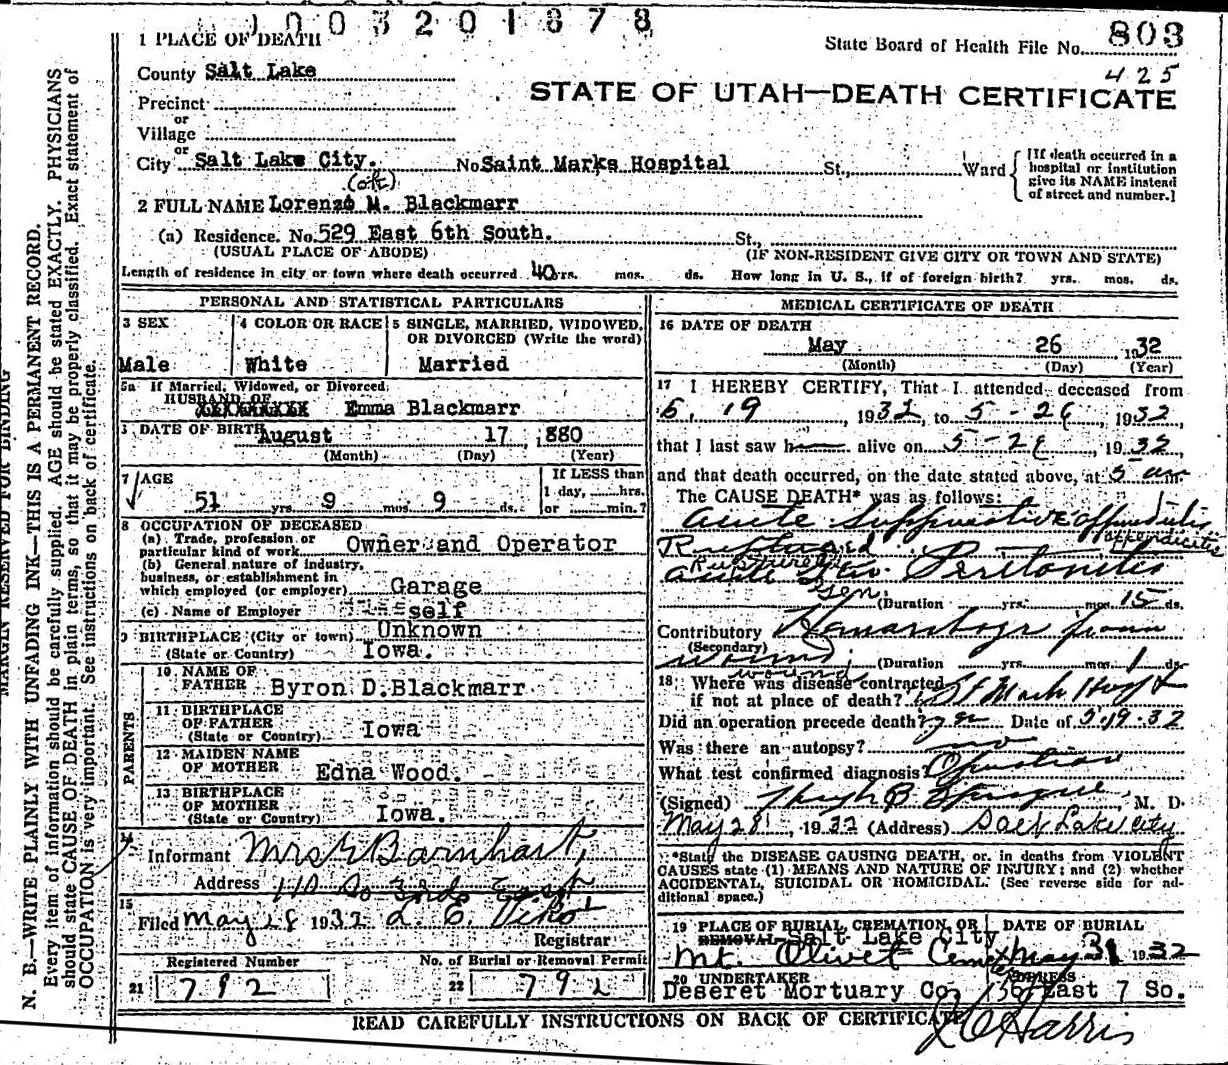 1003201878
1 PLACE OF DEATH
State Board of Health File No. 803
425
County Salt Lake
STATE OF UTAH—DEATH CERTIFICATE
Precinct
or
Village
or
City Salt Lake City. No. Saint Marks Hospital St., Ward
[If death occurred in a hospital or institution give its NAME instead of street and number.]
(ok)
2 FULL NAME Lorenzo M. Blackmarr
(a) Residence. No. 529 East 6th South. St.,
(USUAL PLACE OF ABODE) (IF NON-RESIDENT GIVE CITY OR TOWN AND STATE)
Length of residence in city or town where death occurred 40 yrs. mos. ds. How long in U. S., if of foreign birth? yrs. mos. ds.
PERSONAL AND STATISTICAL PARTICULARS
3 SEX
Male
4 COLOR OR RACE
White
5 SINGLE, MARRIED, WIDOWED, OR DIVORCED (Write the word)
Married
5a If Married, Widowed, or Divorced
HUSBAND OF
Emma Blackmarr
DATE OF BIRTH August 17 1880
(Month) (Day) (Year)
7 AGE
51 yrs. 9 mos. 9 ds.
If LESS than
1 day, hrs.
or min.?
8 OCCUPATION OF DECEASED
(a) Trade, profession or
particular kind of work Owner and Operator
(b) General nature of industry,
business, or establishment in
which employed (or employer) Garage
(c) Name of Employer self
9 BIRTHPLACE (City or town) Unknown
(State or Country) Iowa.
PARENTS
10 NAME OF
FATHER Byron D. Blackmarr
11 BIRTHPLACE
OF FATHER
(State or Country) Iowa
12 MAIDEN NAME
OF MOTHER Edna Wood.
13 BIRTHPLACE
OF MOTHER
(State or Country) Iowa.
14
Informant Mrs E Barnhart,
Address 110 So 3rd East
15
Filed May 28 1932 L. C.
Registrar
Registered Number
21 792
No. of Burial or Removal Permit
22 792
MEDICAL CERTIFICATE OF DEATH
16 DATE OF DEATH
May 26 1932
(Month) (Day) (Year)
17 I HEREBY CERTIFY, That I attended deceased from
19, 1932, to 5-26, 1932,
that I last saw h alive on 5-26, 1932
and that death occurred, on the date stated above, at 5 am.
The CAUSE DEATH* was as follows:
Acute Suppurative appendicitis
appendicitis
Ruptured
Ruptured
acute Gen. Peritonitis
Gen.
(Duration yrs. mos. 15 ds.
Contributory Hemorrhage from
(Secondary)
wound. (Duration yrs. mos. 1 ds.
wound
18 Where was disease contracted
if not at place of death? St Mark Hospt
Did an operation precede death? yes Date of 5-19-32
Was there an autopsy? no
What test confirmed diagnosis? Operation
(Signed) Hugh B Sprague, M. D.
May 28, 1932 (Address) Salt Lake City
*State the DISEASE CAUSING DEATH, or, in deaths from VIOLENT
CAUSES state (1) MEANS AND NATURE OF INJURY; and (2) whether
ACCIDENTAL, SUICIDAL OR HOMICIDAL. (See reverse side for additional space.)
19 PLACE OF BURIAL, CREMATION, OR
REMOVAL Salt Lake City
Mt. Olivet Cemetery
DATE OF BURIAL
May 31 1932
20 UNDERTAKER
Deseret Mortuary Co
ADDRESS
East 7 So.
READ CAREFULLY INSTRUCTIONS ON BACK OF CERTIFICATE
Harris
MARGIN RESERVED FOR BINDING
N. B.—WRITE PLAINLY WITH UNFADING INK—THIS IS A PERMANENT RECORD.
Every item of information should be carefully supplied. AGE should be stated EXACTLY. PHYSICIANS
should state CAUSE OF DEATH in plain terms, so that it may be properly classified. Exact statement of
OCCUPATION is very important. See instructions on back of certificate.